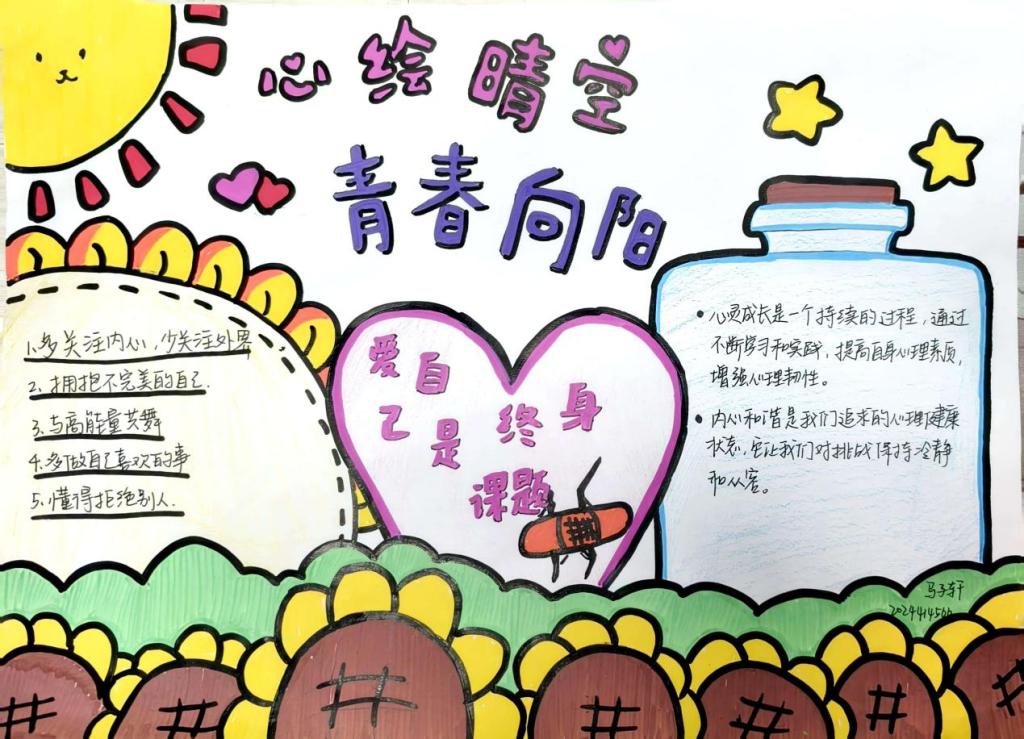 心绘晴空
青春向阳
1.多关注内心，少关注外界
2.拥抱不完美的自己.
3.与高能量共舞
4.多做自己喜欢的事
5.懂得拒绝别人.
爱自
己是终身
课题
•心灵成长是一个持续的过程，通过
不断学习和实践，提高自身心理素质，
增强心理韧性。
•内心和谐是我们追求的心理健康
状态，它让我们对挑战保持冷静
和从容。
马子轩